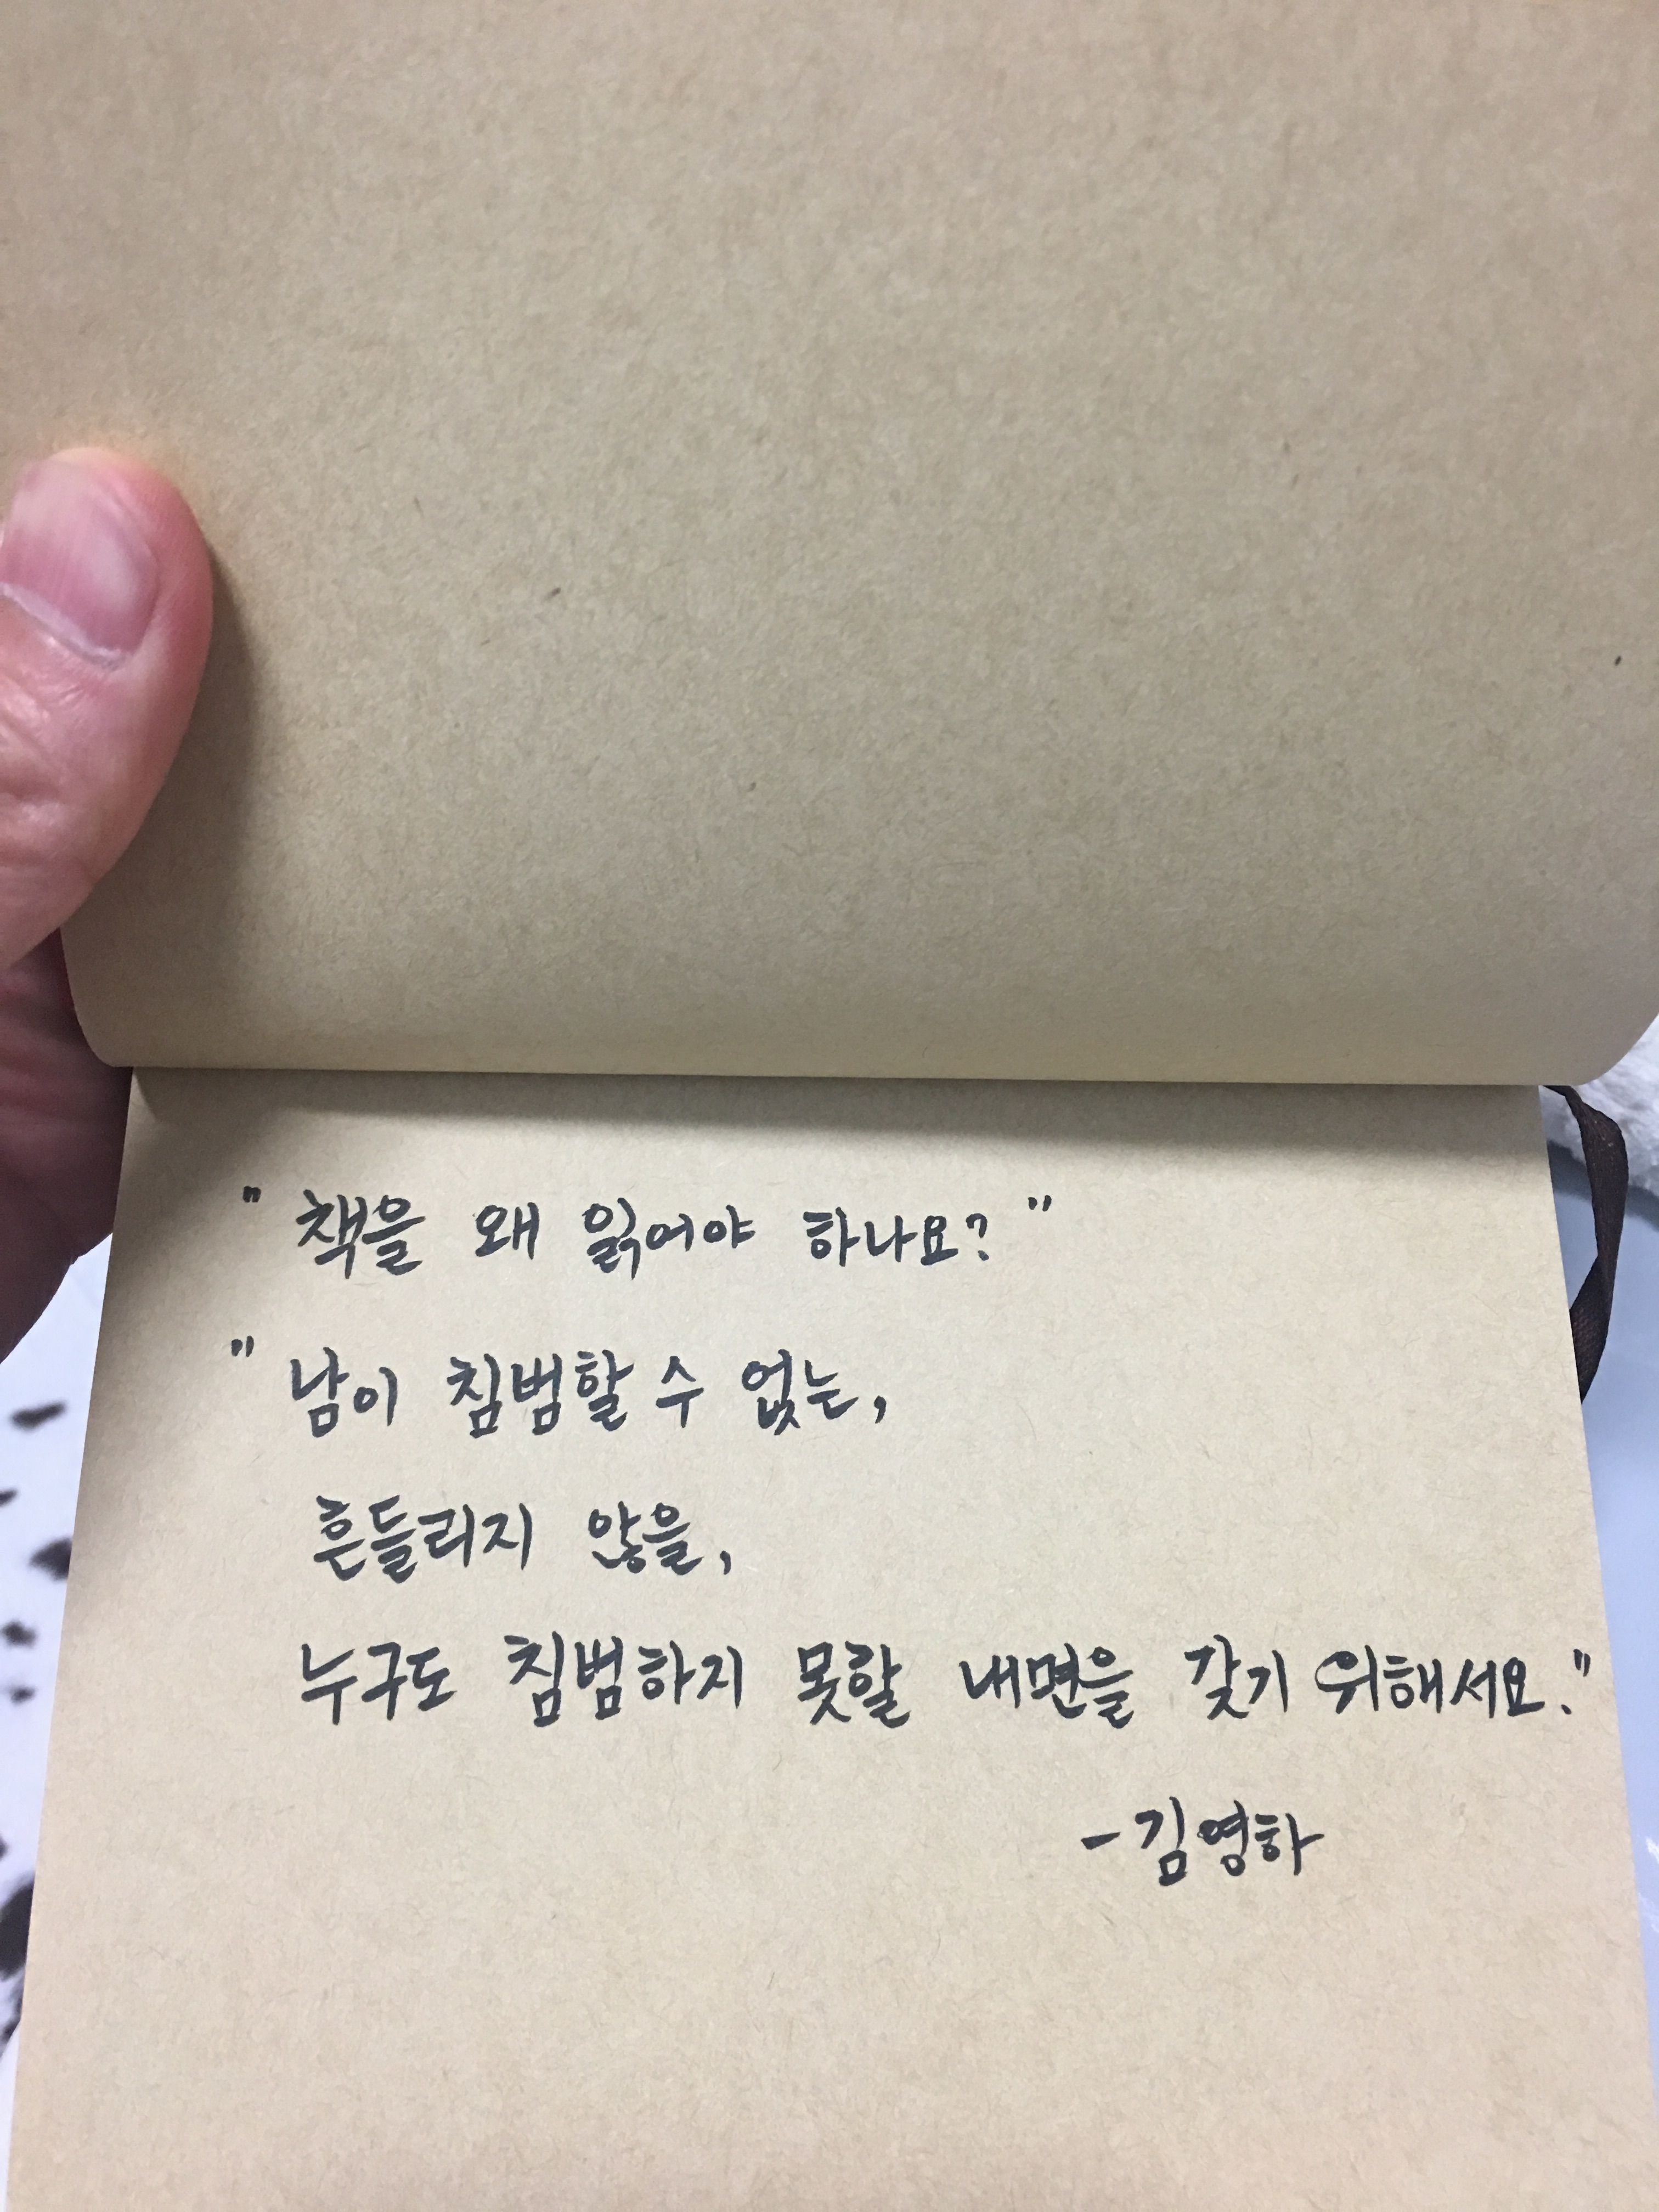 "책을 왜 읽어야 하나요?"
"남이 침범할 수 없는,
흔들리지 않을,
누구도 침범하지 못할 내면을 갖기 위해서요."
-김영하